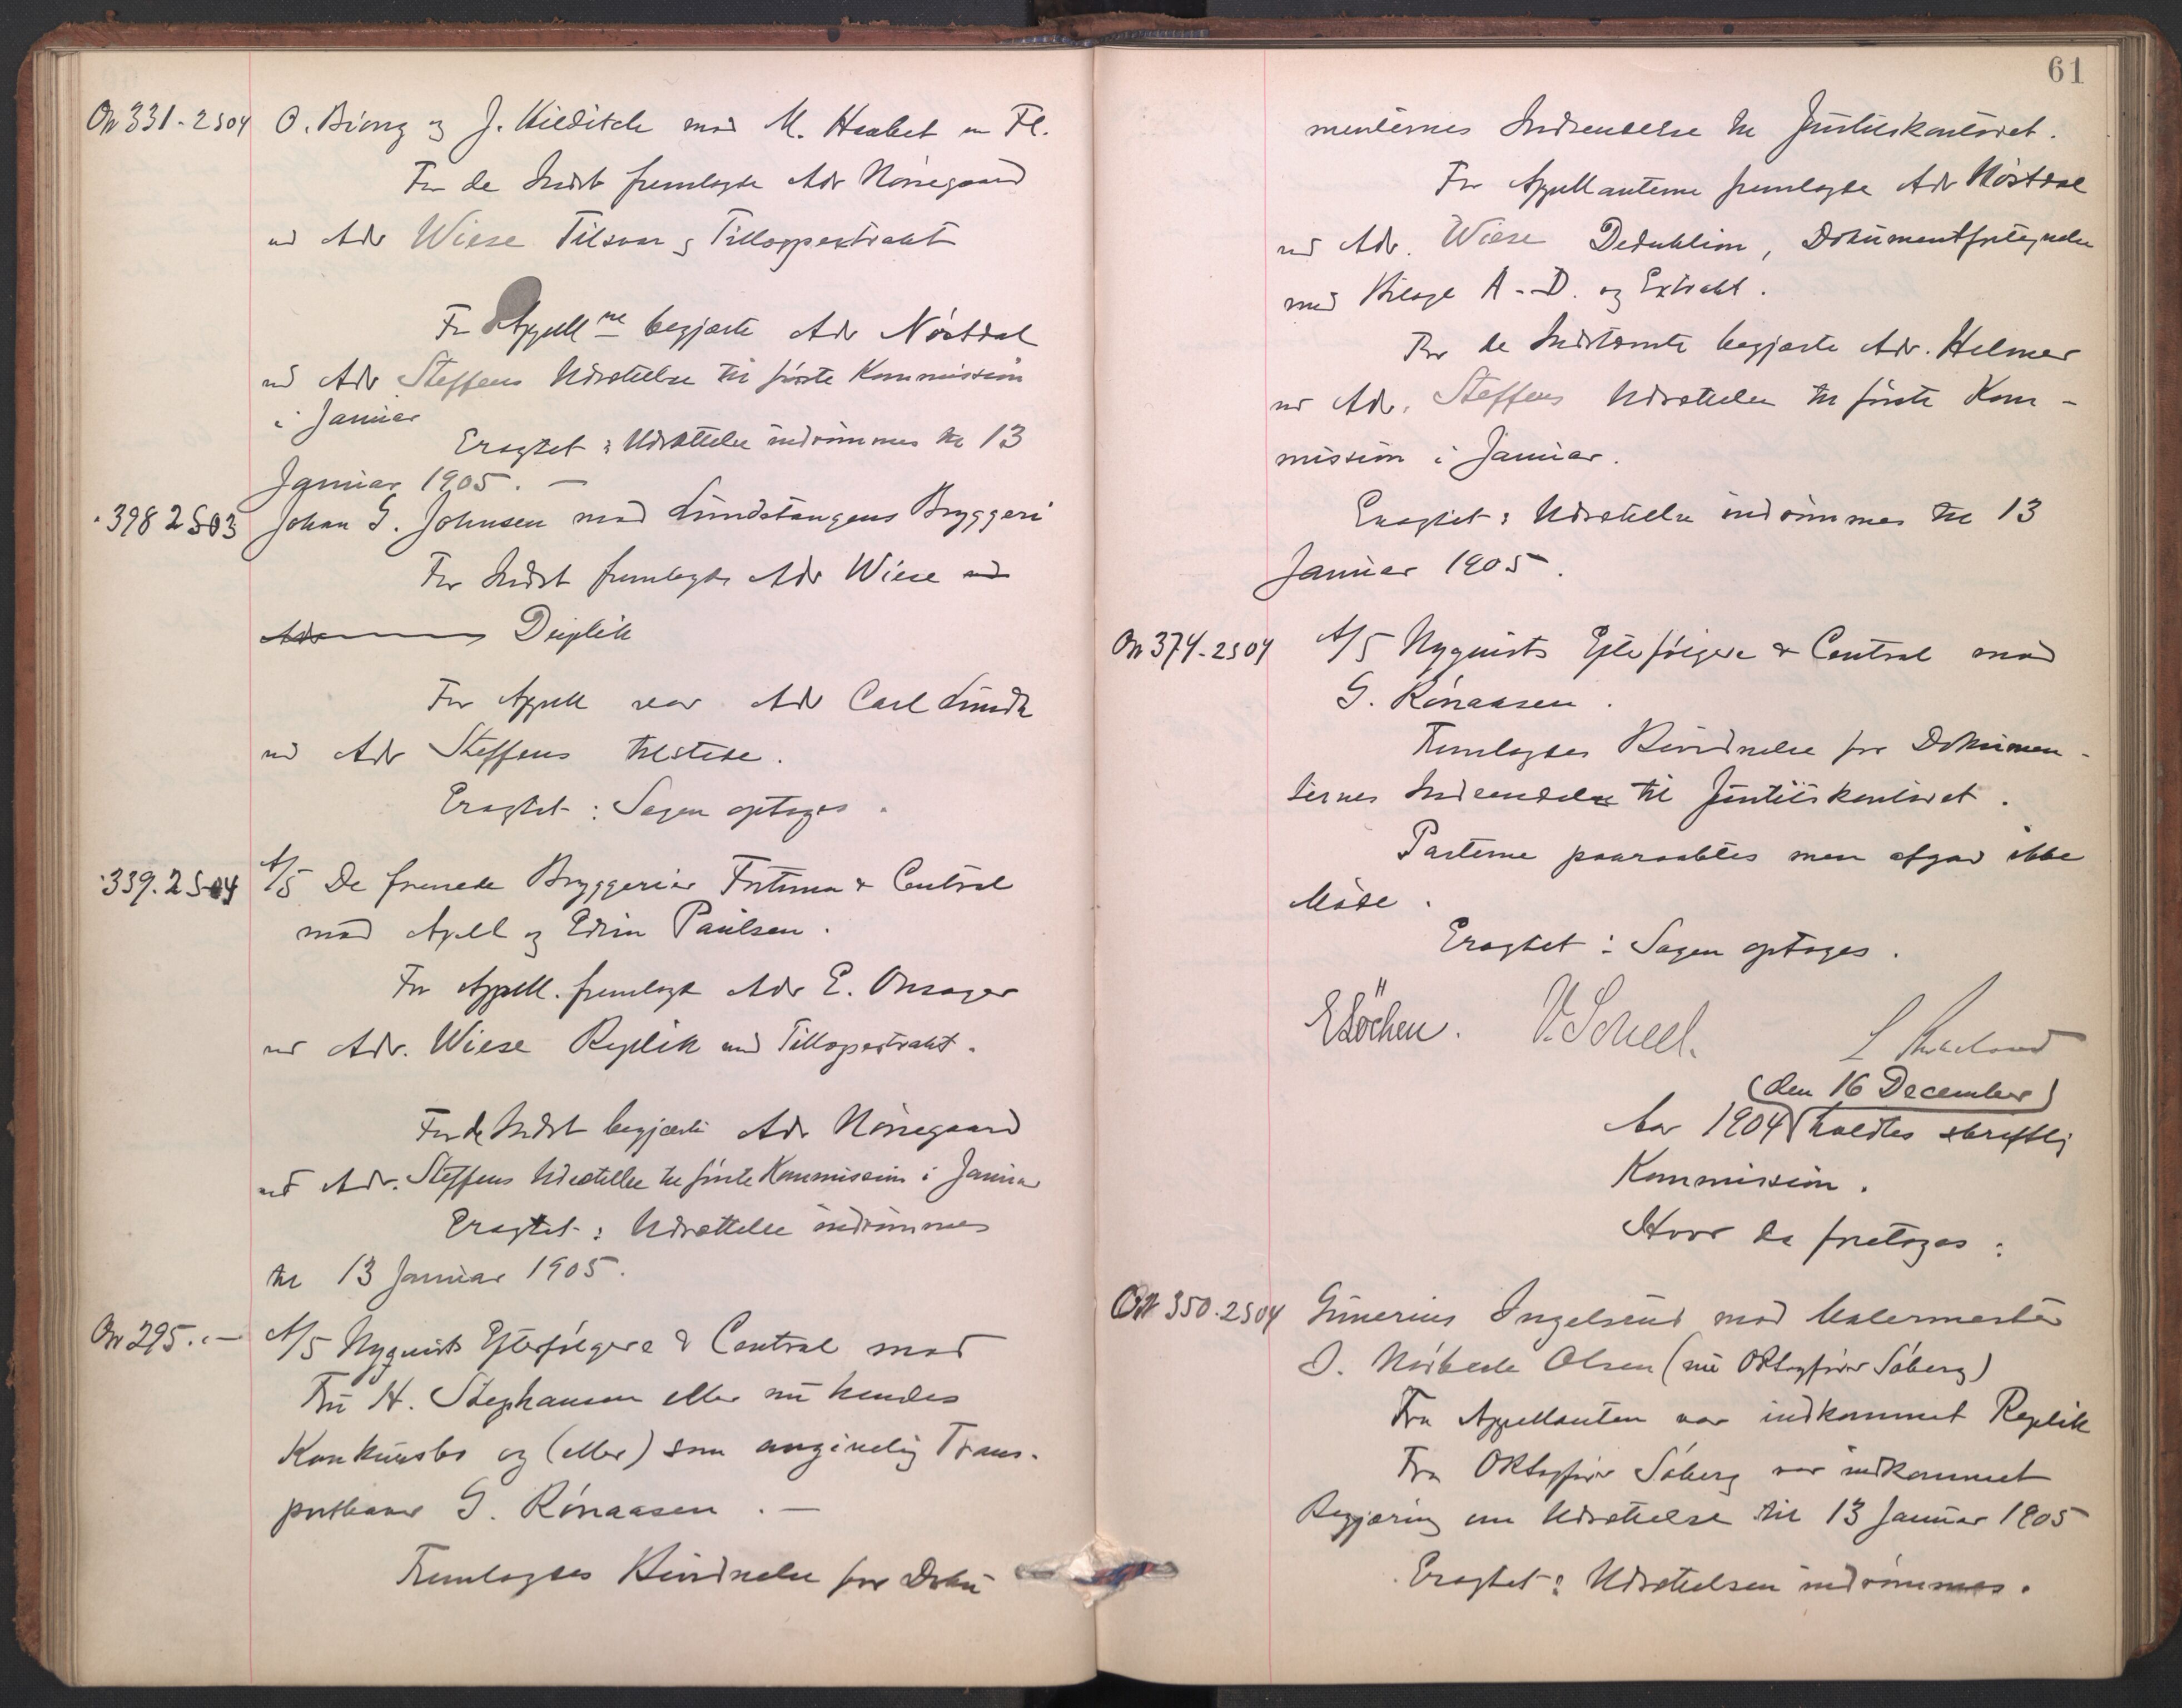 On 331-2 S 04 O. Biong og J. Kielditch mod M. Haabet m Fl.
For de Indst fremlagde Adv Nörregaard
ved Adv Wiese Tilsvar og Tillægsextrakt
For Appell ne begjærte Adv Nöstdal
ved Adv Steffens Udsættelse til förste Kommission
i Januar
Eragtet: Udsættelse indrömmes til 13
Januar 1905. —
" 398 2 S 03 Johan G. Johnsen mod Lundetangens Bryggeri
For Indst fremlagde Adv Wiese ved
Adv Duplik
For Appell var Adv Carl Lundh
ved Adv Steffens tilstede.
Eragtet: Sagen optages.
" 339. 2 S 04 A/S De forenede Bryggerier Fortuna & Central
mod Apell og Edvin Paulsen.
For Appell. fremlagde Adv E. Onsager
ved Adv. Wiese Replik med Tillægsextrakt.
For de Indst begjærte Adv Nörregaard
ved Adv. Steffens Udsættelse til förste Kommission i Januar
Eragtet: Udsættelse indrömmes
til 13 Januar 1905.
On 295. " — A/S Nyquists Efterfölgere & Central mod
Fru H. Stephansen eller nu hendes
Konkursbo og (eller) som angivelig Trans-
porthaver G. Rönaasen. —
Fremlagdes Bevidnelse for Doku
61
menternes Indsendelse til Justitskontoret.
For Appellanterne fremlagde Adv Nöstdal
ved Adv. Wiese Deduktion, Dokumentfortegnelse
med Bilage A-D. og Extrakt.
For de Indstevnte begjærte Adv. Helmer
ved Adv. Steffens Udsættelse til förste Kom-
mission i Januar.
Eragtet: Udsættelse indrömmes til 13
Januar 1905.
On 374-2 S 04 A/S Nyquists Efterfölgere & Central mod
G. Rönaasen.
Fremlagdes Bevidnelse for Dokumen-
ternes Indsendelse til Justitskontoret.
Parterne paaraabtes men afgav ikke
Möde.
Eragtet: Sagen optages.
E Löchen. V. Scheel.
(den 16 December)
Aar 1904 holdtes skriftlig
Kommission.
Hvor da foretoges:
On 350. 2 S 04 Gunerius Ingelsrud mod Malermester
O. Nörbech Olsen (nu ORtsagförer Söberg)
Fra Appellanten var indkommet Replik
Fra ORtsagförer Söberg var indkommet
Begjæring om Udsættelse til 13 Januar 1905
Eragtet: Udsættelsen indrömmes.